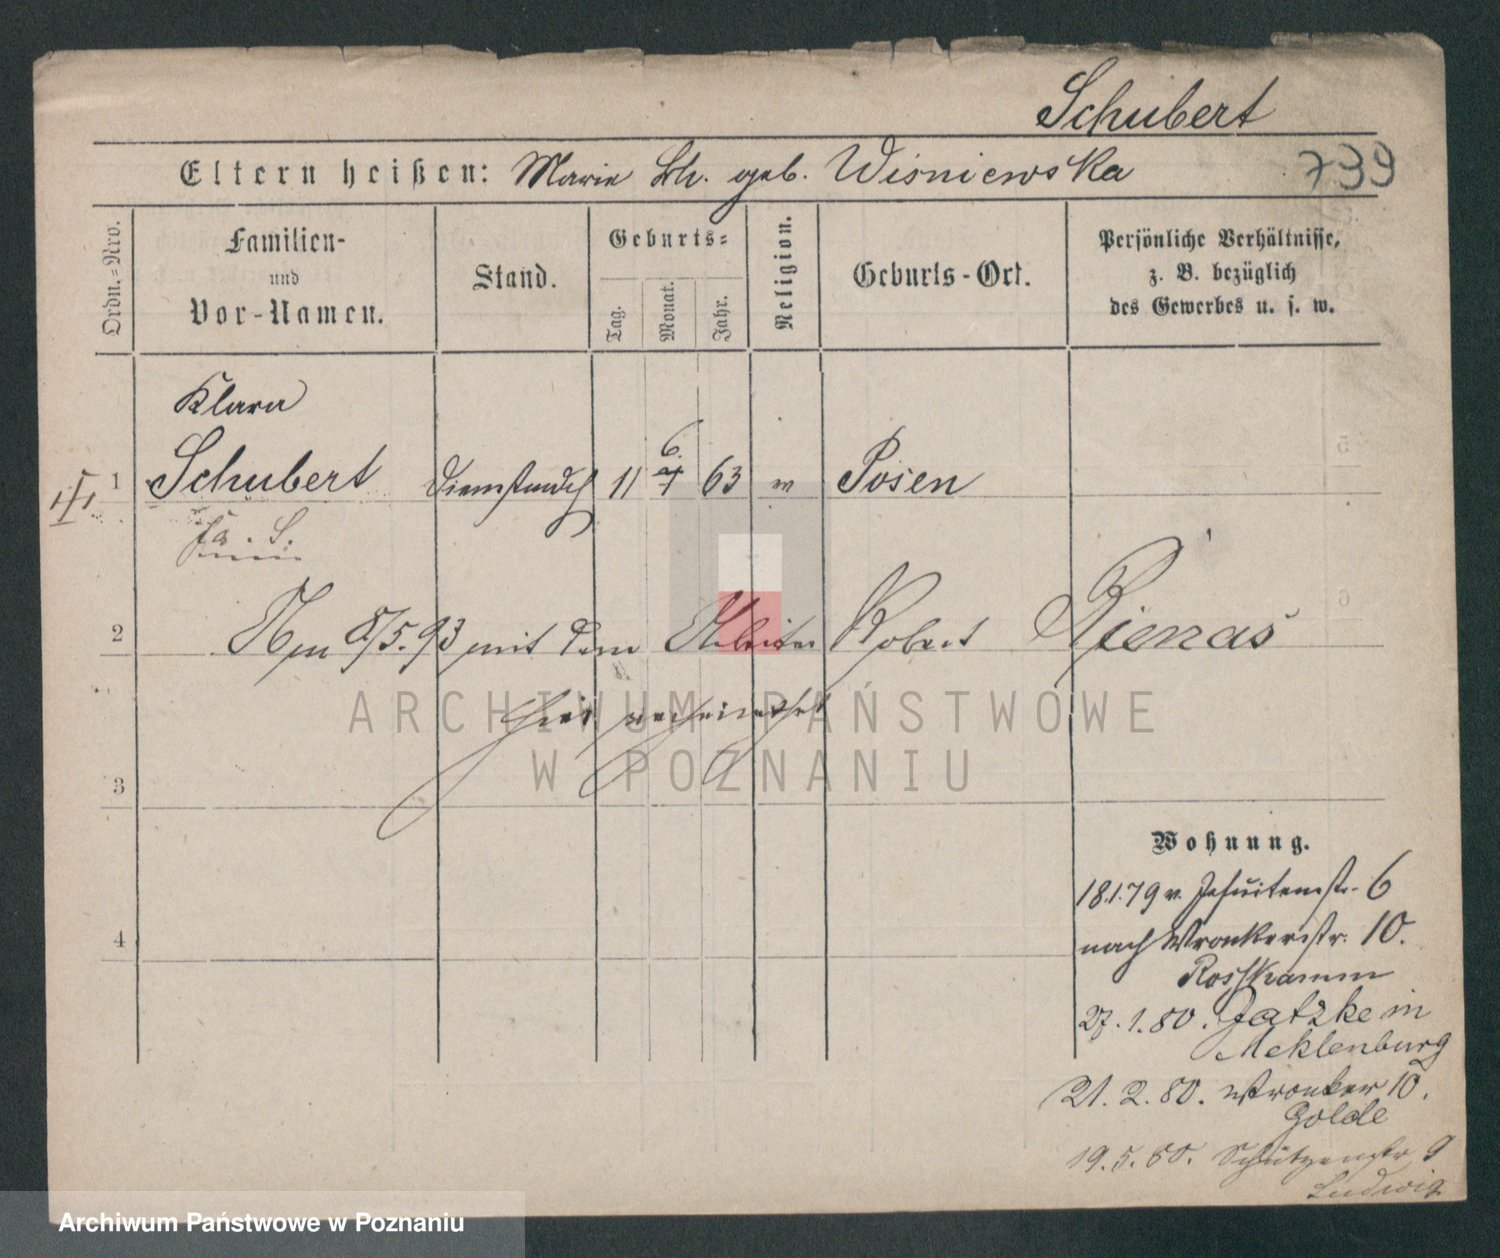 Schubert
Eltern heißen: Marie Sch. geb. Wiśniewska 739
Ordn.-Nro.
Familien-
und
Vor-Namen.
Stand.
Geburts-
Tag.
Monat.
Jahr.
Religion.
Geburts-Ort.
Persönliche Verhältnisse,
z. B. bezüglich
des Gewerbes u. s. w.
Klara
1 Schubert 11 6. 63 Posen
2 Am 8/5.93 mit dem Arbeiter Robert Pienas
hier verheirathet
3
4
Wohnung.
18.1.79 v. Jesuitenstr. 6
nach Wronkerstr. 10.
Rosskamm
27.1.80. Jatzke in
Meklenburg
21.2.80. Wronker 10.
Golde
19.5.80. Schützenstr 9
Ludwig
ARCHIWUM PAŃSTWOWE
W POZNANIU
Archiwum Państwowe w Poznaniu